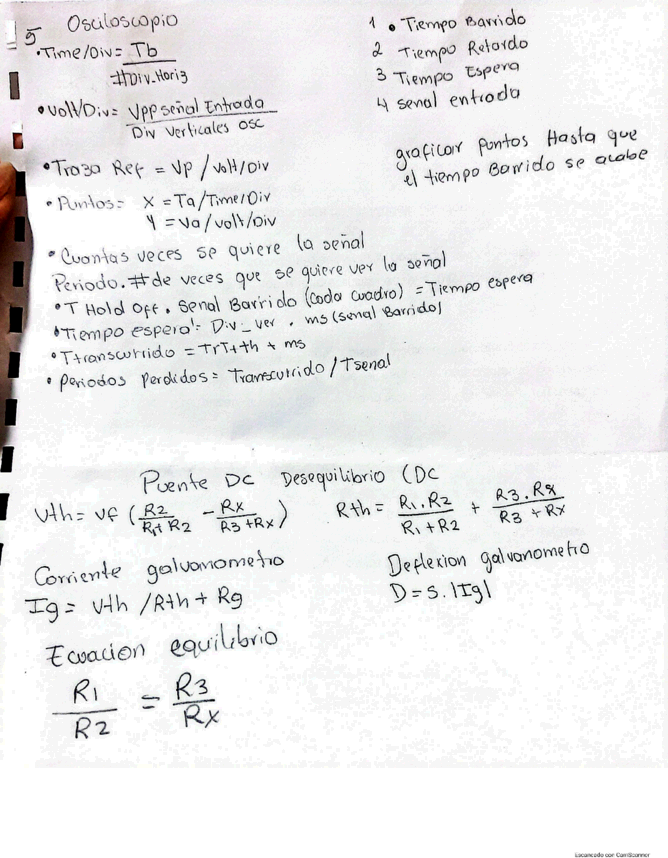 5 Osciloscopio
• Time/Div = Tb / #Div_Horiz
• Volt/Div = Vpp señal Entrada / Div verticales osc
• Trazo Ref = Vp / volt/Div
• Puntos = X = Ta/Time/Div
Y = Va/volt/Div
1 • Tiempo Barrido
2 Tiempo Retardo
3 Tiempo Espera
4 señal entrada
graficar puntos Hasta que
el tiempo Barrido se acabe
• Cuantas veces se quiere la señal
Periodo . # de veces que se quiere ver la señal
• T Hold Off . Señal Barrido (cada cuadro) = Tiempo espera
• Tiempo espera = Div_ver . ms (señal Barrido)
• Ttranscurrido = TrT + th + ms
• Periodos Perdidos = Transcurrido / Tsenal
Puente DC Desequilibrio (DC
Vth = Vf (R2 / R1+R2 - Rx / R3+Rx)
Rth = R1.R2 / R1+R2 + R3.Rx / R3+Rx
Corriente galvanometro
Ig = Vth / Rth + Rg
Deflexion galvanometro
D = S. |Ig|
Ecuacion equilibrio
R1 / R2 = R3 / Rx
Escaneado con CamScanner